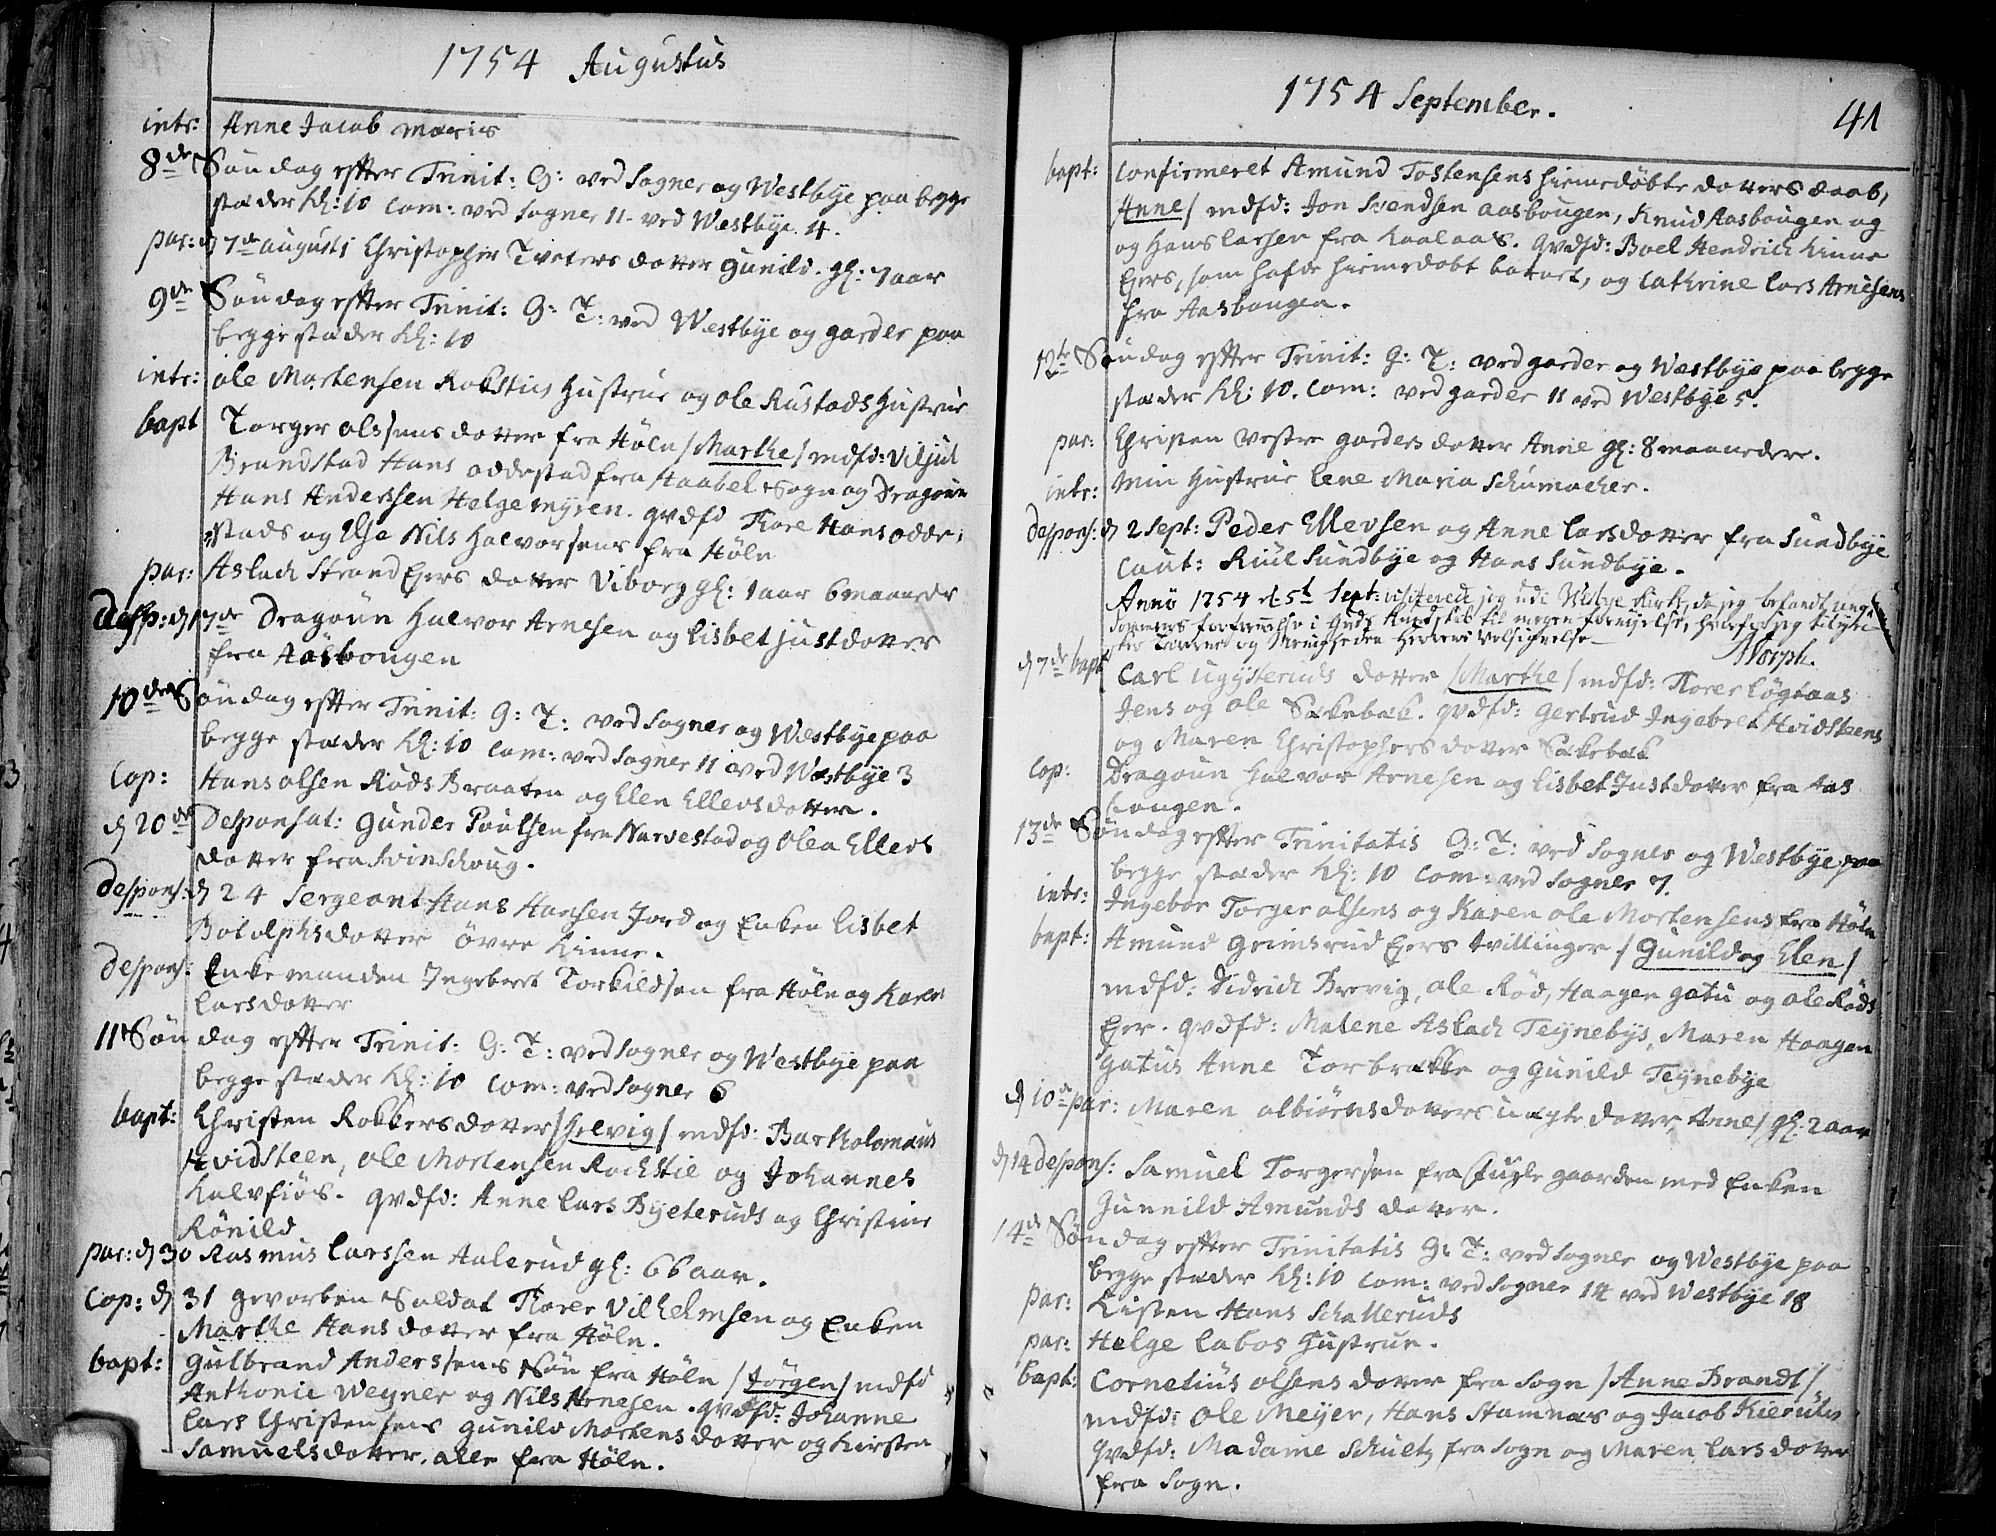 1754 Augustus
intr: Anne Jacob Maries
8de Søndag effter Trinit: G: ved Sogner og Westbye paa begge
stæder Kl: 10 Com: ved Sogner 11 - ved Westbye 4.
par: d 7de augusti Christopher Tveters dotter Gunild. gl: 7 aar
9de Søndag effter Trinit: G: T: ved Westbye og garder paa
begge stæder Kl: 10
intr: ole Mortensen Roksties Hustrue og ole Rustads Hustrue
bapt Torger olssens dotter fra Høln / Marthe / mdfd: Viljul
Brandstad Hans oddestad fra Haabel Sogn og Dragoun
Hans Anderssen Helgemyren. qvdfd Thore Hans odde:
stads og Else Nils Halvorsens fra Høln
par: Aslach Strand Ejers dotter Viborg gl: 1 aar 6 maaneder
desp: d 17de Dragoun Halvor Arnesen og Lisbet Justdotter
fra Aasbongen
10de Søndag effter Trinit: G: T: ved Sogner og Westbye paa
begge stæder Kl: 10 Com: ved Sogner 11 ved Westbye 3
Cop: Hans olsen Røds Braaten og Elen Ellevsdotter.
d 20de Desponsat: Gunder Poulsen fra Narvestad og Olea Ellevs
dotter fra Svinschoug.
despons: d 24 Sergeant Hans Hansen Jord og Enken Lisbet
Botolphsdotter øvre Kinne.
despons: Enkemanden Ingebret Torkildsen fra Høln og Karen
Larsdotter
11te Søndag effter Trinit: G: T: ved Sogner og Westbye paa
begge stæder Kl: 10 Com: ved Sogner 6
bapt: Christen Rokkers dotter / Helvig / mdfd: Bartholomæus
Hvidsteen, ole Mortensen Rochstie og Johannes
Kalvfiøs. qvdfd: Anne Lars Byeteruds og Christine
Rønild
par: d 30 Rasmus Larssen Aalerud gl: 66 aar.
Cop: d 31 gevorben Soldat Thorer Vilhelmsen og Enken
Marthe Hansdotter fra Høln.
bapt: Gulbrand Anderssens Søn fra Høln / Jørgen / mdfd
Anthonie Weyner og Nils Arnesen. qvdfd: Johanne
Lars Christensens Gunild Mortensdotter og Kirsten
Samuelsdotter, alle fra Høln.
1754 September.
41
bapt: Confirmeret Amund Tostensens hiemedøbte dotters daab,
/ Anne / mdfd: Jon Svendsen aasbougen, Knud Aasbougen og
og Hans Larsen fra Kaalaas. qvdfd: Boel Hendrich Kinne
Ejers, som hafde hiemedøbt barnet, og Cathrine Lars Arnesens
fra Aasbongen.
12te Søndag effter Trinit: G: T: ved garder og Westbye paa begge
stæder Kl: 10. Com: ved garder 11 ved Westbye 5.
par: Christen Vestre garders dotter Anne gl: 8 maaneder.
intr: Min Hustrue Lene Maria Schumacher.
despons: d 2 Sept: Peder Ellevsen og Anne Larsdotter fra Sundbye
Caut: Riul Sundbye og Hans Sundbye.
Anno 1754 d 5te Sept: visiterede jeg udi Westbye Kirke, da jeg befandt ung-
dommens forfremmelse i Guds Kundskab til megen fornøyelse,
og Meenigheden Herrens Velsignelse
d 7de bapt Carl Ugysteruds dotter / Marthe / mdfd: Thorer Løgtaas
Jens og ole Sækebæk. qvdfd: Gertrud Ingebret Hvidsteens
og Maren Christophersdotter Sækebæk
Cop: Dragoun Halvor Arnesen og Lisbet Justdotter fra Aas
bongen.
13de Søndag effter Trinitatis G: T: ved Sogner og Westbye paa
begge stæder Kl: 10 Com: ved Sogner 7.
intr: Ingebor Torger olsens og Karen ole Mortensens fra Høln
bapt: Amund Grimsrud Ejers tvillinger / Gunild og Elen /
mdfd: Didrich Brevig, ole Rød, Haagen gatu og ole Røds
Ejer. qvdfd: Malene Aslach Teynebys, Maren Haagen
gatus Anne Torbrække og Gunild Teynebye
d 10de par: Maren olbiørnsdotters uægte dotter Anne / gl: 2 aar
d 14 despons: Samuel Torgersen fra fuglegaarden med Enken
Gunnild Amunds dotter.
14de Søndag effter Trinitatis G: T: ved Sogner og Westbye paa
begge stæder Kl: 10 Com: ved Sogner 14 ved Westbye 18
par: Kisten Hans Schalleruds
par: Helge Labos Hustrue.
bapt: Cornelius olsens dotter fra Sogn / Anne Brandt /
mdfd: Ole Meyer, Hans Stamnæs og Jacob Kierulf
qvdfd: Madame Schultz fra Sogn og Maren Larsdotter
fra Sogn.